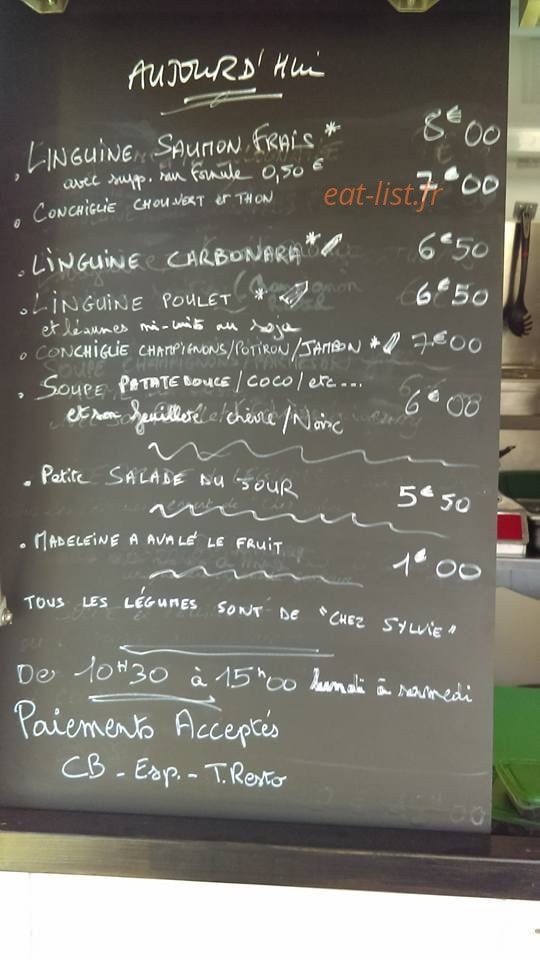 AUJOURD'HUI
. LINGUINE SAUMON FRAIS * 8€00
avec supp. sur formule 0,50 €
eat-list.fr
. CONCHIGLIE CHOU VERT et THON 7€00
. LINGUINE CARBONARA * 6€50
. LINGUINE POULET * 6€50
et légumes mi-cuits au soja
. CONCHIGLIE CHAMPIGNONS/POTIRON/JAMBON * 7€00
. SOUPE PATATE DOUCE/COCO/etc... 6€00
et son feuilleté chèvre/Noix
. Petite SALADE DU JOUR 5€50
. MADELEINE A AVALÉ LE FRUIT 1€00
TOUS LES LÉGUMES SONT DE "CHEZ SYLVIE"
De 10H30 à 15h00 lundi à samedi
Paiements Acceptés
CB - Esp. - T.Resto